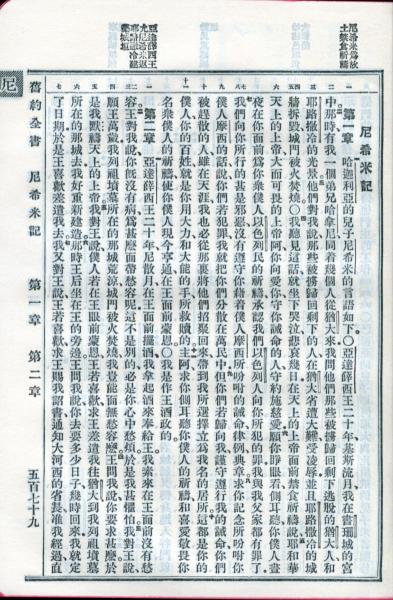 尼希米為故
土禁食祈禱
尼希米記
第一章 哈迦利亞的兒子尼希米的言語如下〇亞達薛西王二十年基斯流月我在書珊城的宮
中那時有我一個弟兄哈拿尼同着幾個人從猶大來我問他們那些被擄歸回剩下逃脫的猶大人和
耶路撒冷的光景他們對我說那些被擄歸回剩下的人在猶大省遭大難受凌辱並且耶路撒冷的城
墻拆毀城門被火焚燒〇我聽見這話就坐下哭泣悲哀幾日在天上的上帝面前禁食祈禱說耶和華
天上的上帝大而可畏的上帝阿你向愛你守你誡命的人守約施慈愛願你睜眼看側耳聽你僕人晝
夜在你面前為你衆僕人以色列民的祈禱承認我們以色列人向你所犯的罪我與我父家都有罪了
我們向你所行的甚是邪惡沒有遵守你藉着僕人摩西所吩咐的誡命律例典章求你記念所吩咐你
僕人摩西的話說你們若犯罪我就把你們分散在萬民中但你們若歸向我謹守遵行我的誡命你們
被趕散的人雖在天涯我也必從那裏將他們招聚回來帶到我所選擇立為我名的居所這都是你的
僕人你的百姓就是你用大力和大能的手所救贖的主阿求你側耳聽你僕人的祈禱和喜愛敬畏你
名衆僕人的祈禱使你僕人現今亨通在王面前蒙恩〇我是作王酒政的
亞達薛西王
允尼希米返
耶路撒冷建
築城垣
第二章 亞達薛西王二十年尼散月在王面前擺酒我拿起酒來奉給王我素來在王面前沒有愁
容王對我說你既沒有病為甚麼面帶愁容呢這不是別的必是你心中愁煩於是我甚懼怕我對王說
願王萬歲我列祖墳墓所在的那城荒涼城門被火焚燒我豈能面無愁容麼王問我說你要求甚麼於
是我默禱天上的上帝我對王說僕人若在王眼前蒙恩王若喜歡求王差遣我往猶大到我列祖墳墓
所在的那城去我好重新建造那時王后坐在王的旁邊王問我說你去要多少日子幾時回來我就定
了日期於是王喜歡差遣我去我又對王說王若喜歡求王賜我詔書通知大河西的省長准我經過直
舊約全書 尼希米記 第一章 第二章 五百七十九
尼